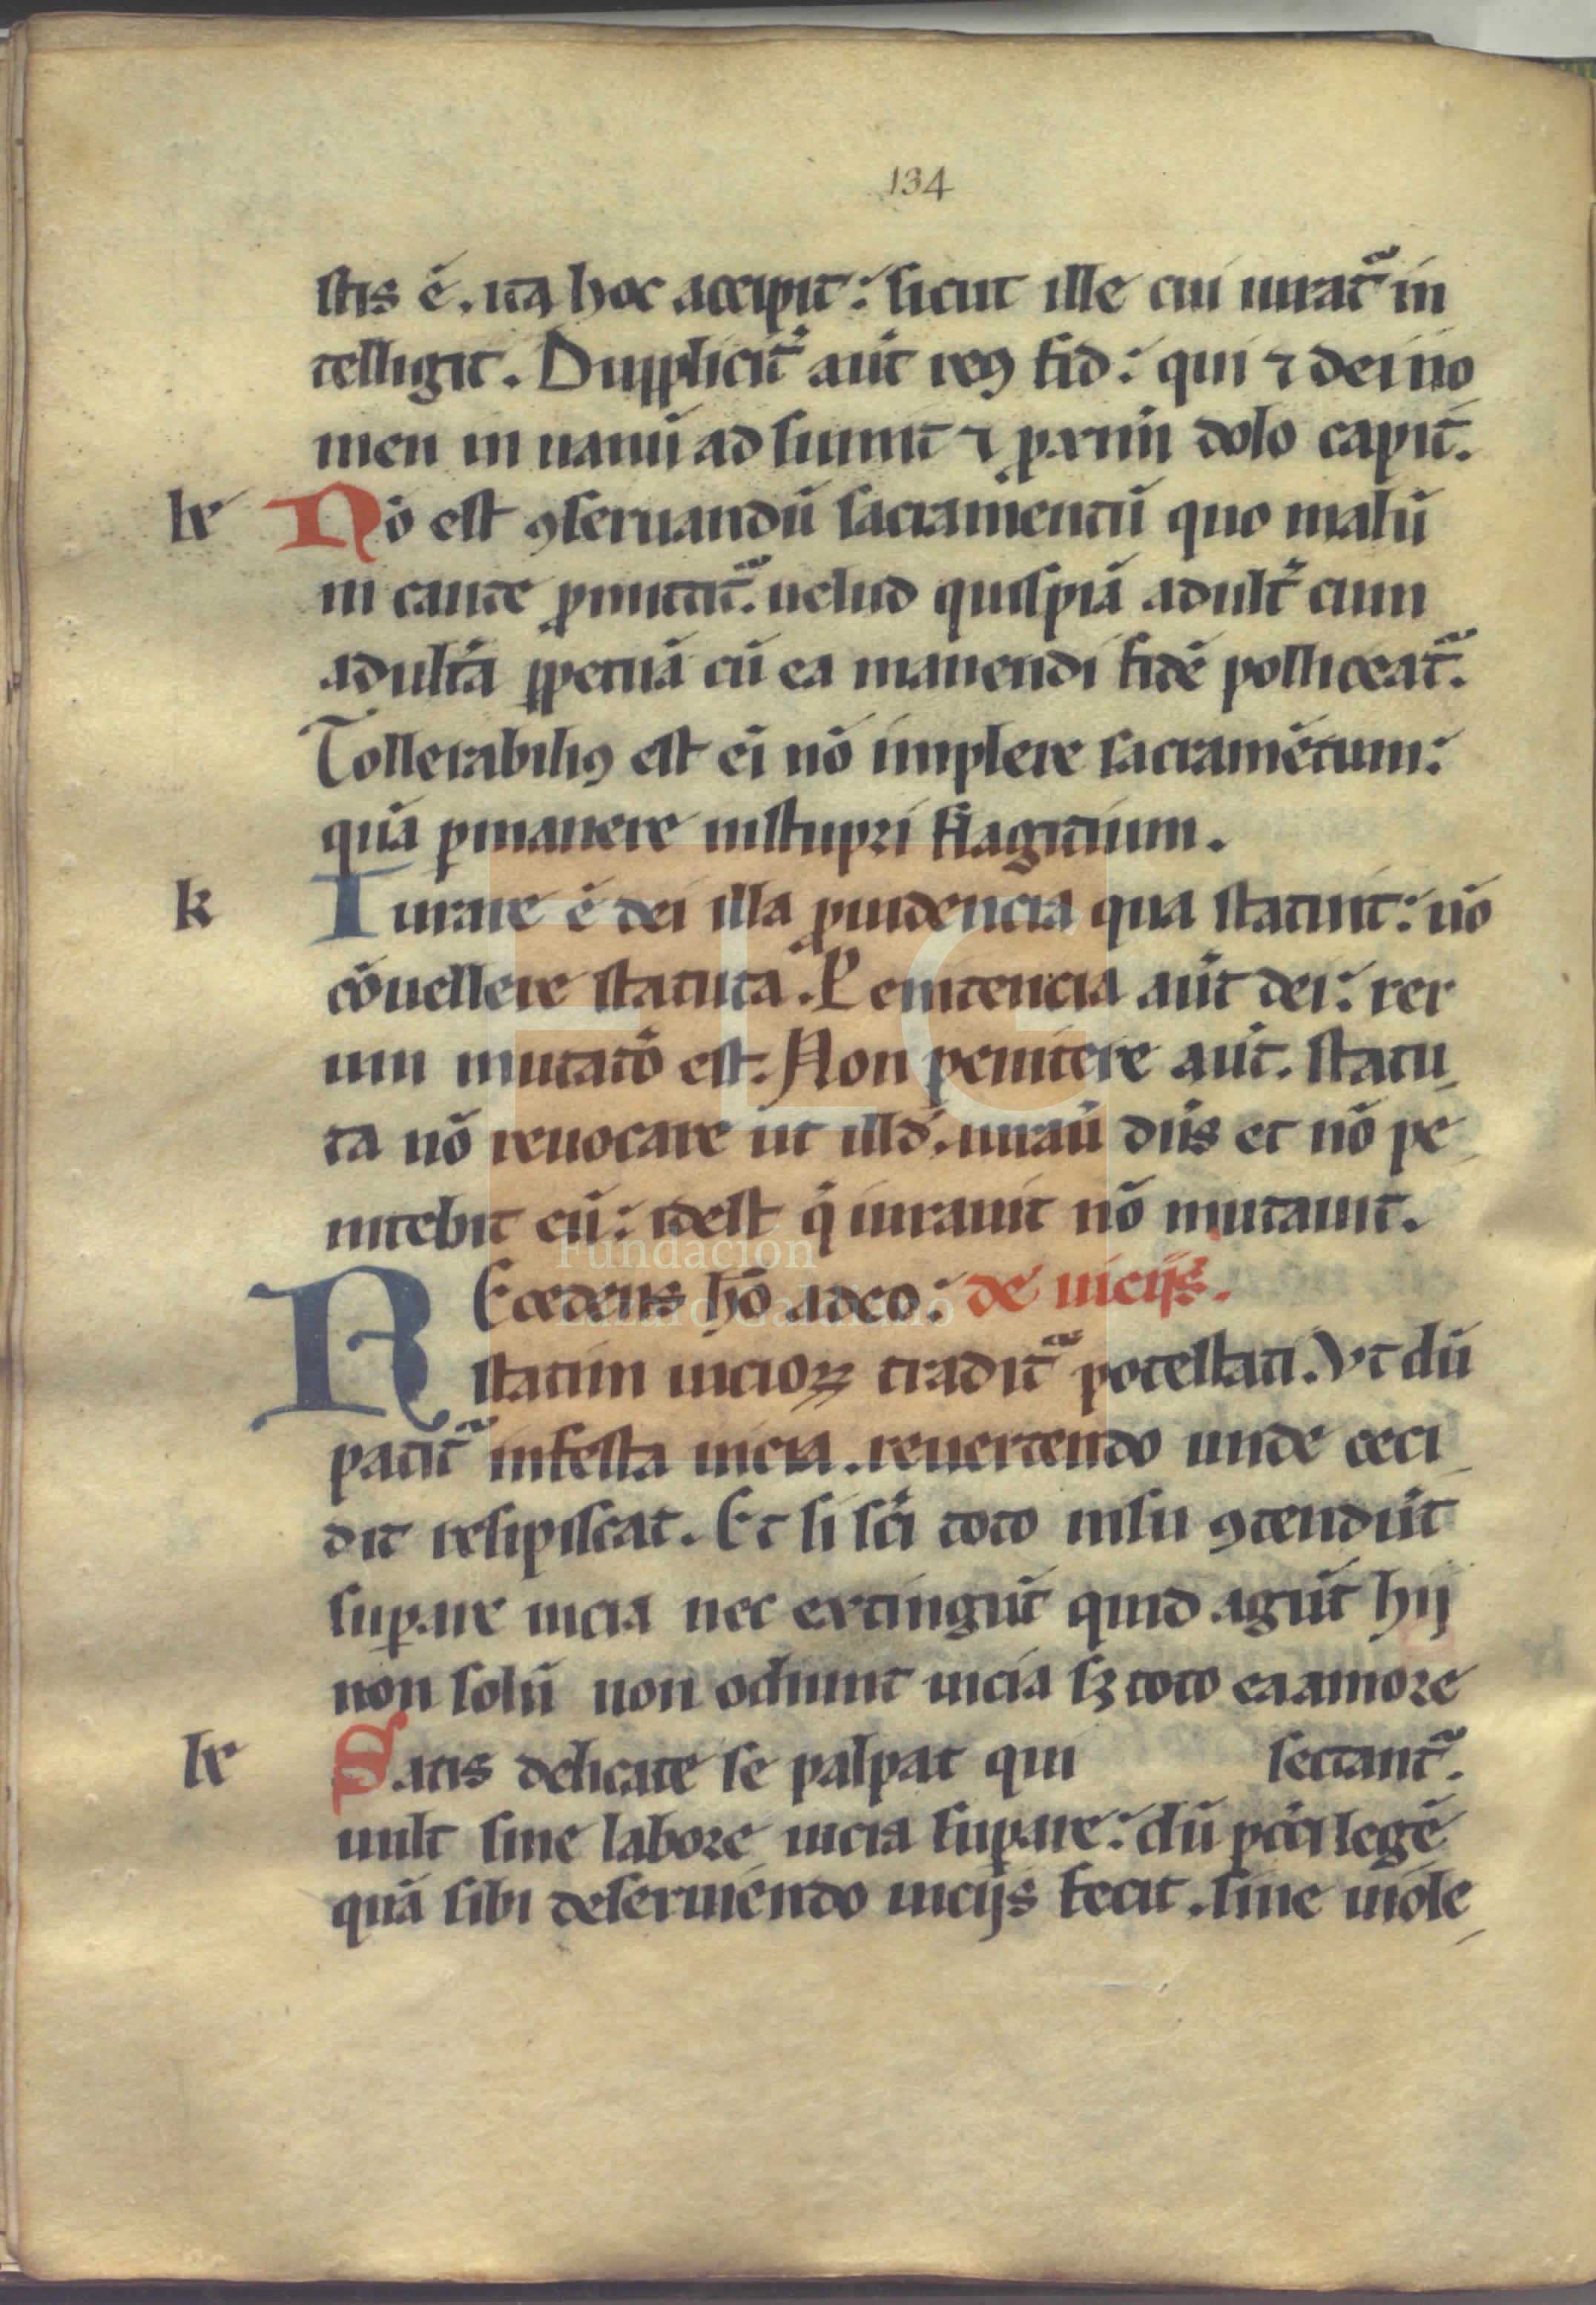 134
stis ē. ita hoc accipit: sicut ille cui iurat᷑ in
telligit. Duppliciť aūt reꝰ fid: qui ⁊ dei no
men in uanū ad sumit ⁊ ꝓximū dolo capit.
lx Nō est ꝯseruandū sacramentū quo malū
in caute ꝓmittit᷑. uelud quispiā adulť cum
adultā ꝑpetuā cū ea manendi fidē polliceat᷑.
Tollerabiliꝰ est ei nō implere sacramētum:
quā ꝑmanere instupri flagicium.
k Iurare ē dei illa ꝓuidencia qua statuit: nō
cōuellere statuta. Penitencia aūt dei: rer
um mutatō est. Non penitere aūt. statu
ta nō reuocare ut illđ. iurau̅ dn̅s et nō pe
nitebit eū: idest q̄ iurauit nō mutauit.
REcedens hō adeo: de uicijs.
statim uicioꝝ tradit᷑ potestati. Vt dū
patit᷑ infesta uicia. reuertendo unde ceci
dit resipiscat. Et si sc̄i toto nisu ꝯtendūt
suꝑare uicia nec extingūt quid agūt hij
non solū non odiunt uicia sꝫ toto ea amore
lx Satis delicate se palpat qui sectant᷑.
uult sine labore uicia suꝑare: dū pc̄ci legē
quā sibi deseruiendo uicijs fecit. sine uiole
Fundación
Lázaro Galdiano
FLG